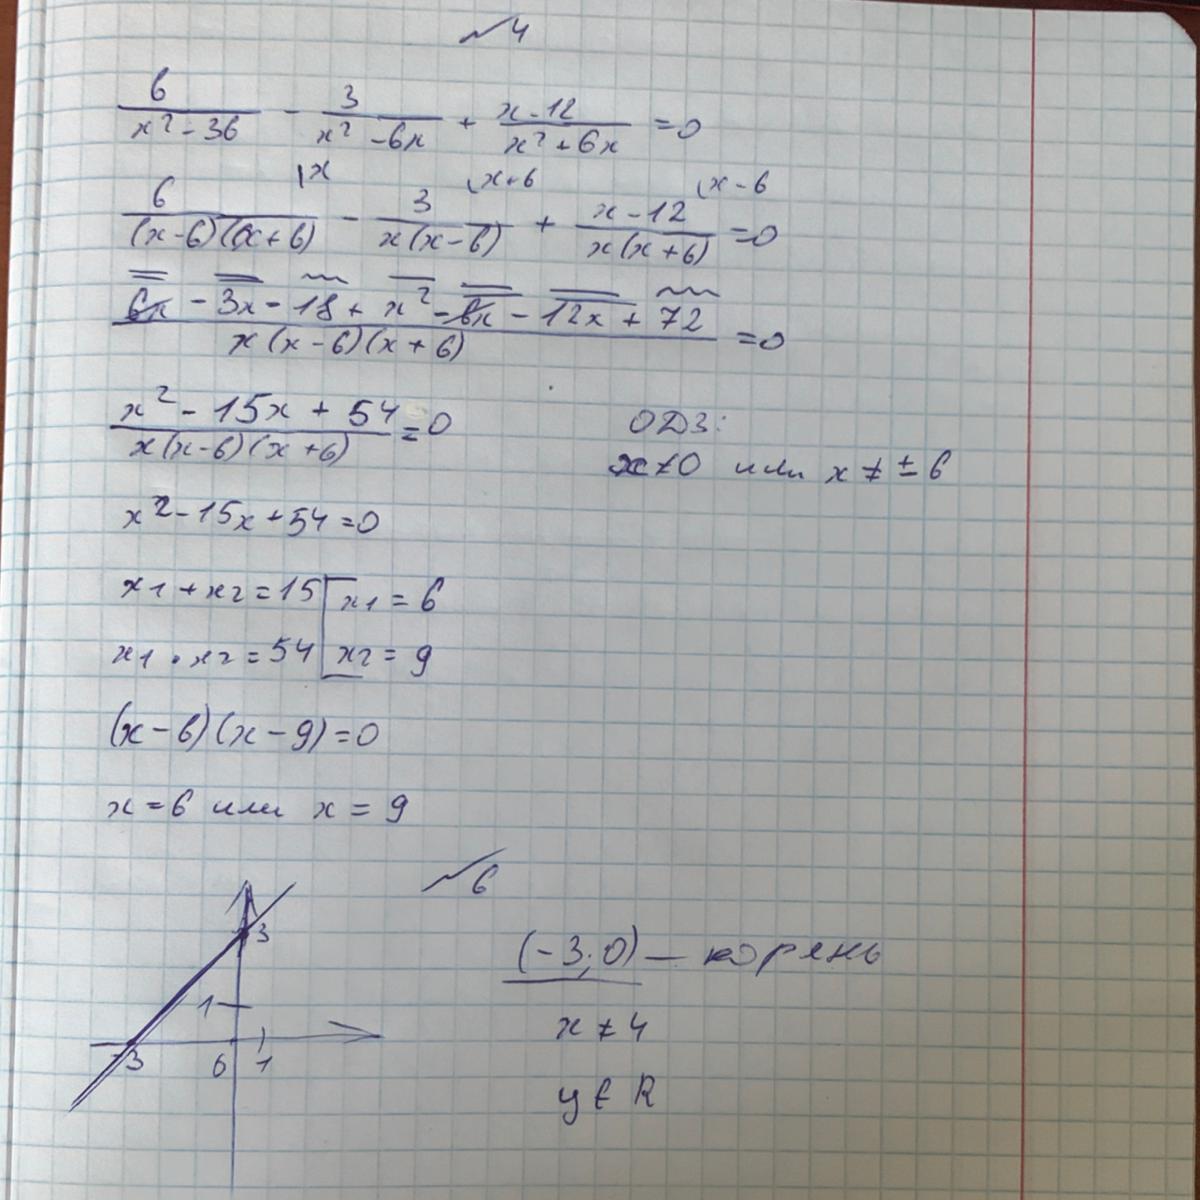 №4
6/(x²-36) - 3/(x²-6x) + (x-12)/(x²+6x) = 0
6/((x-6)(x+6)) \x - 3/(x(x-6)) \x+6 + (x-12)/(x(x+6)) \x-6 = 0
(6x - 3x - 18 + x² - 6x - 12x + 72)/(x(x-6)(x+6)) = 0
(x² - 15x + 54)/(x(x-6)(x+6)) = 0
ОДЗ:
x≠0 или x ≠ ± 6
x² - 15x + 54 = 0
x1 + x2 = 15 x1 = 6
x1 · x2 = 54 x2 = 9
(x-6)(x-9)=0
x = 6 или x = 9
№6
3
1
-3 0 1
(-3; 0) — корянь
x ≠ 4
y ∈ R